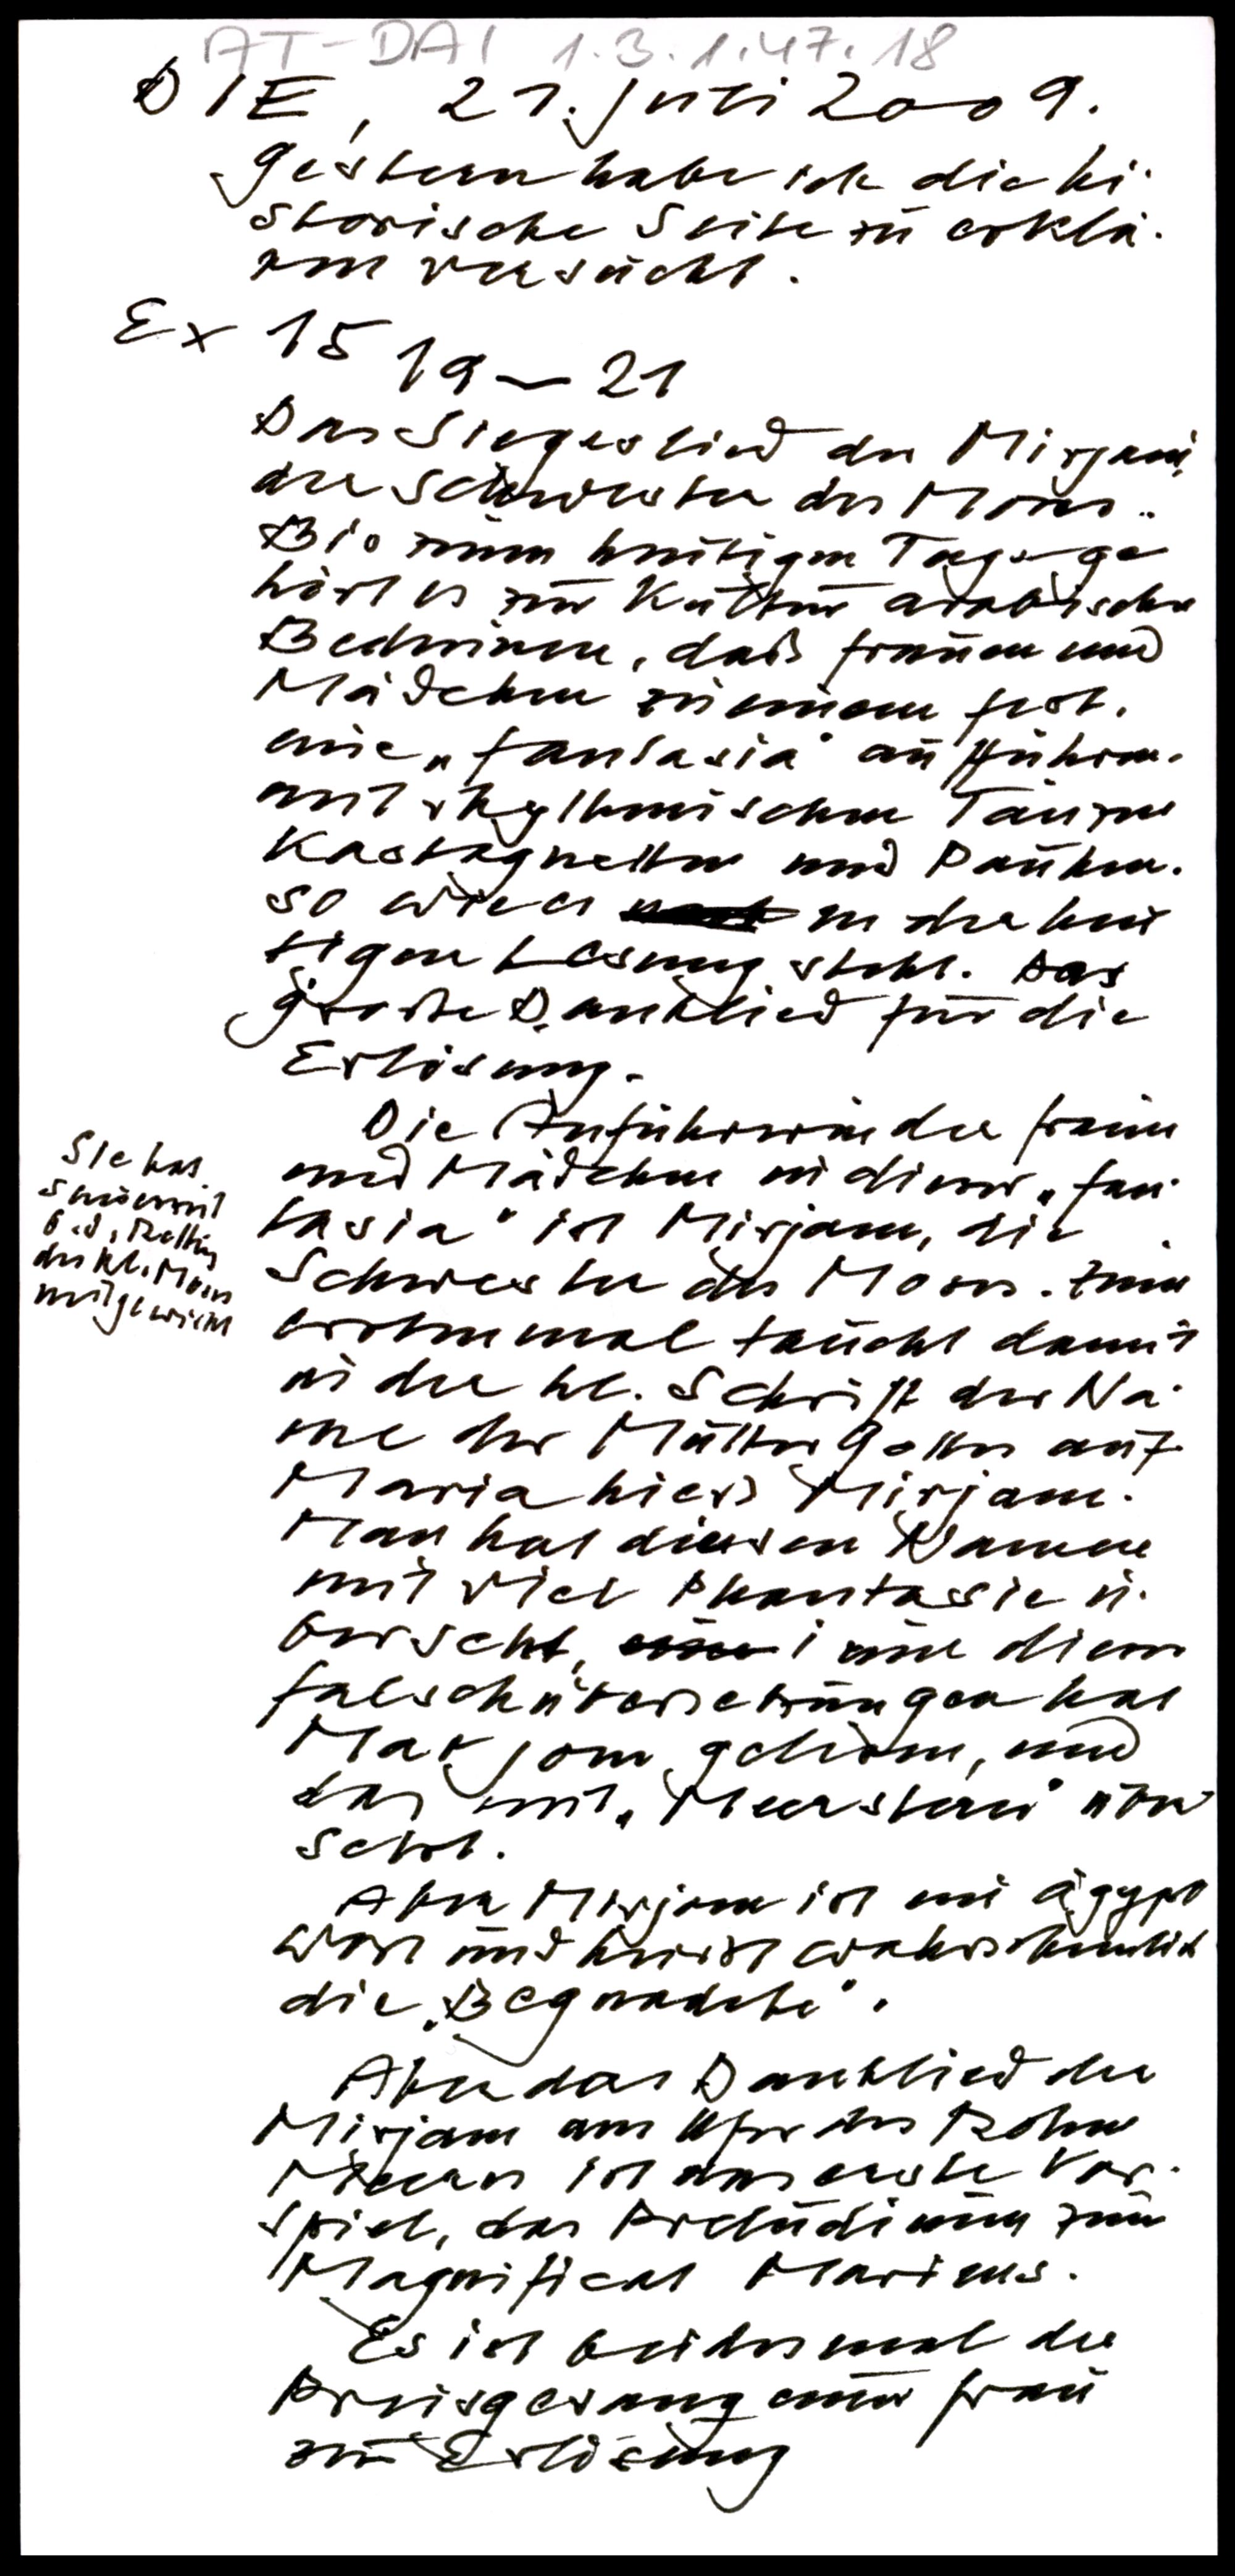 AT-DAI 1.3.1.47.18
DIE, 21. Juli 2009.
Gestern habe ich die hi-
storische Seite zu erklä-
ren versucht.
Ex 15 19-21
Das Siegeslied der Mirjam,
der Schwester des Moses.
Bis zum heutigen Tage ge
hört es zur Kultur arabischer
Beduinen, daß Frauen und
Mädchen zu einem Fest.
eine "fantasia" aufführen.
mit rhythmischem Tänzen
Kastagnetten und Pauken.
so wie es in der heu
tigen Lesung steht. Das
große Danklied für die
Erlösung.
Die Anführerin der Frauen
und Mädchen in dieser "fan-
tasia" ist Mirjam, die
Schwester des Moses. Zum
erstenmal taucht damit
in der hl. Schrift der Na-
me der Mutter Gottes auf.
Maria hiess Mirjam.
Man hat diesen Namen
mit viel Phantasie ü-
bersetzt, eine dieser
Falschübersetzungen hat
Mar jam gelesen, und
das mit "Meerstern" über
setzt.
Aber Mirjam ist ein ägypt
Wort und heisst wahrscheinlich
die "Begnadete".
Aber das Danklied der
Mirjam am Ufer des Roten
Meeres ist das erste Vor-
spiel, das Preludium zum
Magnificat Mariens.
Es ist beidesmal der
Preisgesang einer Frau
zur Erlösung
Sie hat
seinerzeit
b.d. Rettung
des kl. Moses
mitgewirkt